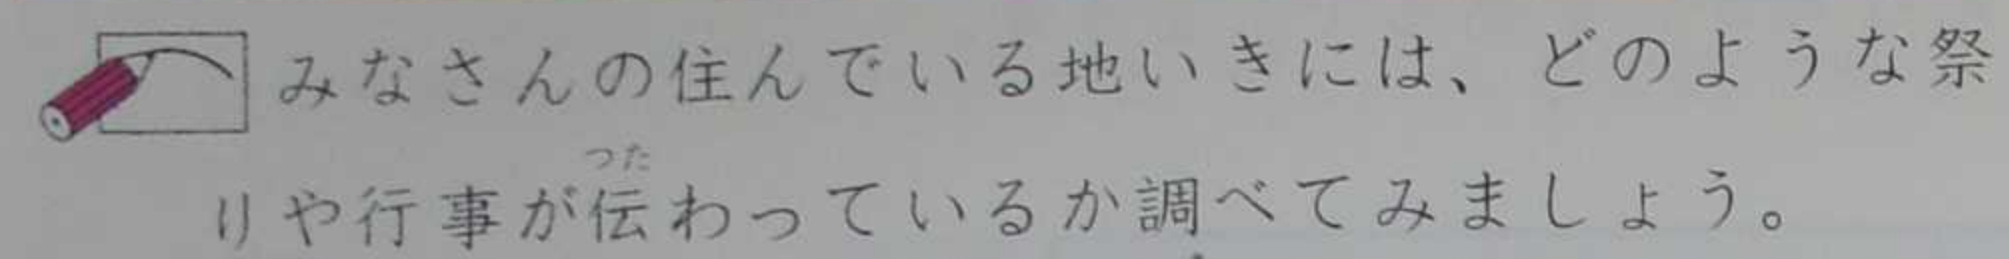 みなさんの住んでいる地いきには、どのような祭
つた
りや行事が伝わっているか調べてみましょう。